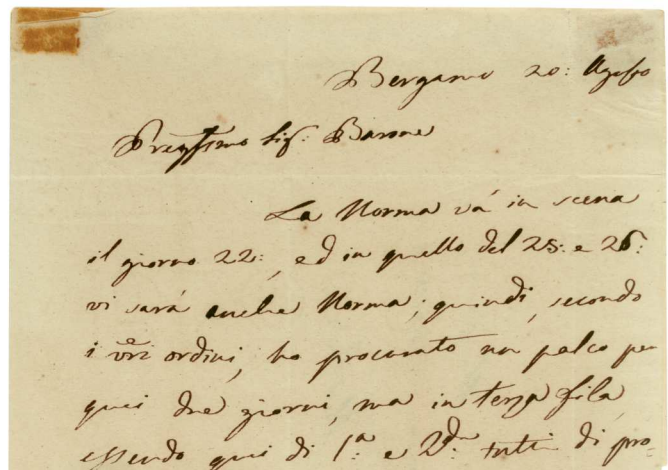 Bergamo 20: Agosto
Pregmo Sig: Barone
La Norma vá in scena
il giorno 22:, ed in quello del 25: e 26:
vi sará anche Norma; quindi, secondo
i vri ordini, ho procurato un palco per
quei due giorni, ma in terza fila
essendo qui di 1a: e 2da: tutti di pro-